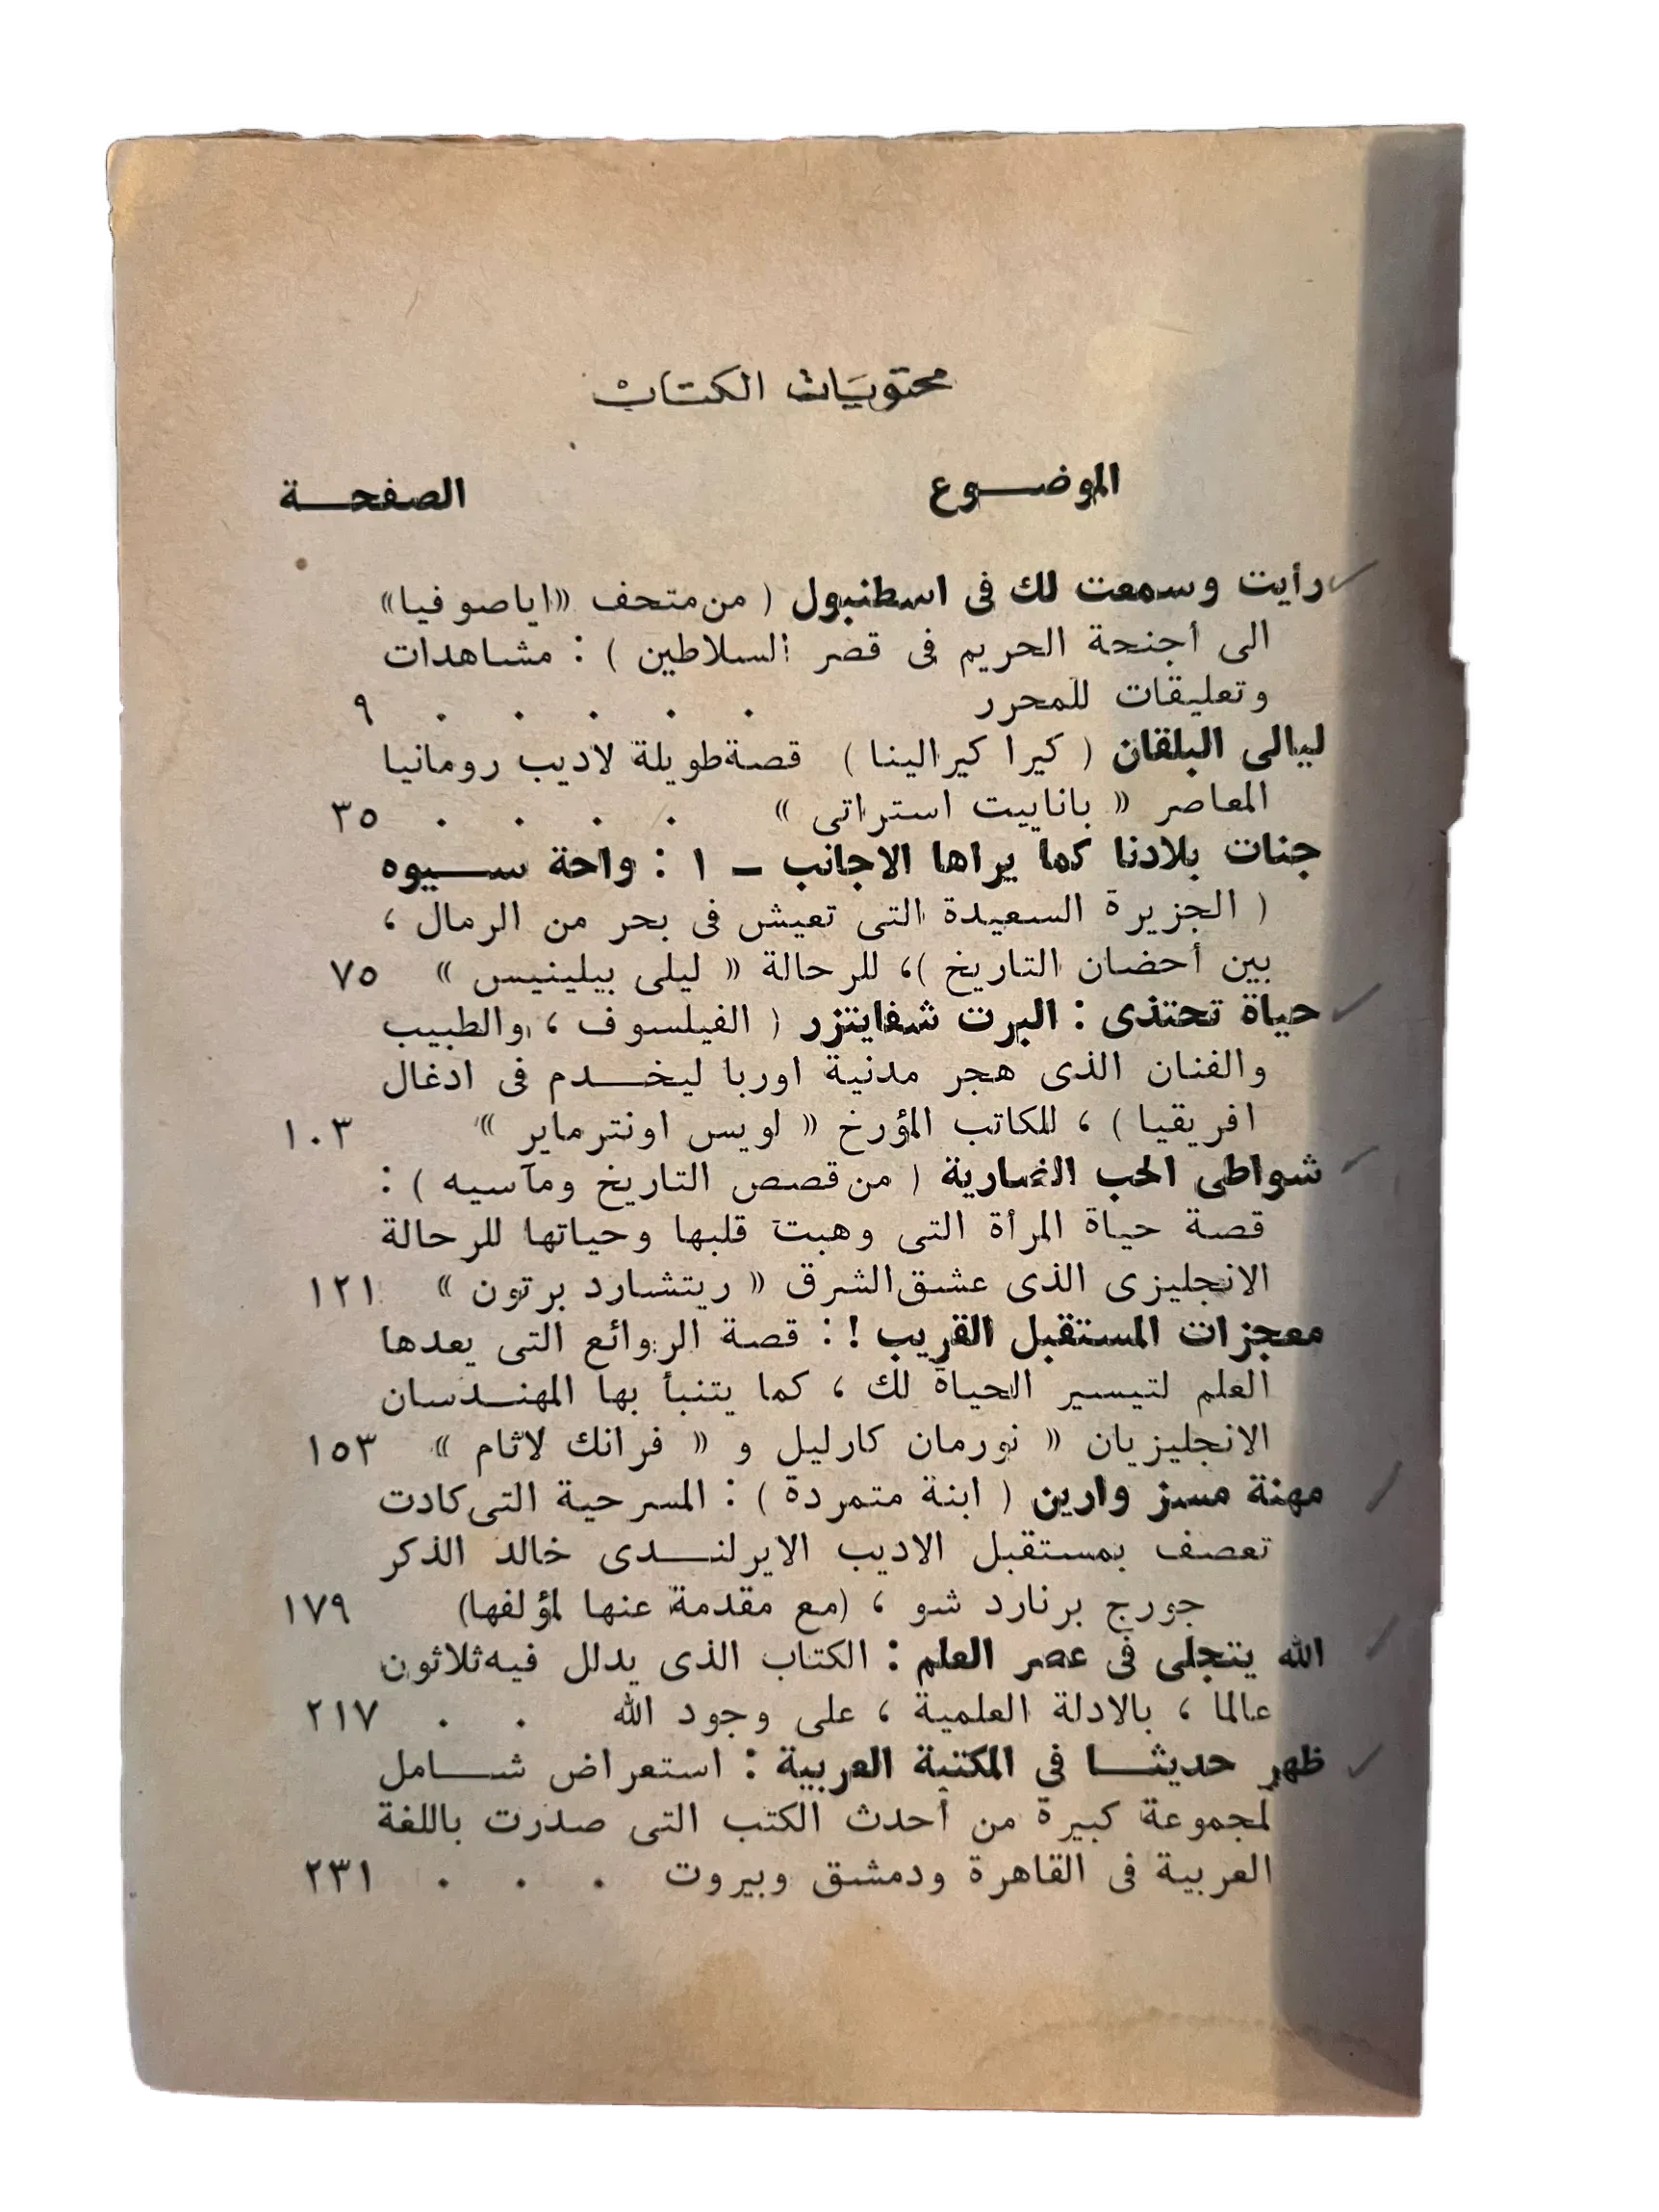 محتويات الكتاب
الموضوع الصفحة
رأيت وسمعت لك فى اسطنبول ( من متحف «اياصوفيا»
الى أجنحة الحريم فى قصر السلاطين ) : مشاهدات
وتعليقات للمحرر . . . . . ٩
ليالى البلقان ( كيرا كيرالينا ) قصة طويلة لاديب رومانيا
المعاصر « باناييت استراتى » . . . . ٣٥
جنات بلادنا كما يراها الاجانب - ١ : واحة سيوه
( الجزيرة السعيدة التى تعيش فى بحر من الرمال ،
بين أحضان التاريخ )، للرحالة « ليلى بيلينيس » ٧٥
حياة تحتذى : البرت شفايتزر ( الفيلسوف ، والطبيب
والفنان الذى هجر مدنية اوربا ليخدم فى ادغال
افريقيا ) ، للكاتب المؤرخ « لويس اونترماير » ١٠٣
شواطى الحب الضارية ( من قصص التاريخ ومآسيه ) :
قصة حياة المرأة التى وهبت قلبها وحياتها للرحالة
الانجليزى الذى عشق الشرق « ريتشارد برتون » ١٢١
معجزات المستقبل القريب ! : قصة الروائع التى يعدها
العلم لتيسير الحياة لك ، كما يتنبأ بها المهندسان
الانجليزيان « نورمان كارليل و « فرانك لاثام » ١٥٣
مهنة مسز وارين ( ابنة متمردة ) : المسرحية التى كادت
تعصف بمستقبل الاديب الايرلندى خالد الذكر
جورج برنارد شو ، (مع مقدمة عنها لمؤلفها) ١٧٩
الله يتجلى فى عصر العلم : الكتاب الذى يدلل فيه ثلاثون
عالما ، بالادلة العلمية ، على وجود الله . . ٢١٧
ظهر حديثا فى المكتبة العربية : استعراض شامل
لمجموعة كبيرة من أحدث الكتب التى صدرت باللغة
العربية فى القاهرة ودمشق وبيروت . . . ٢٣١